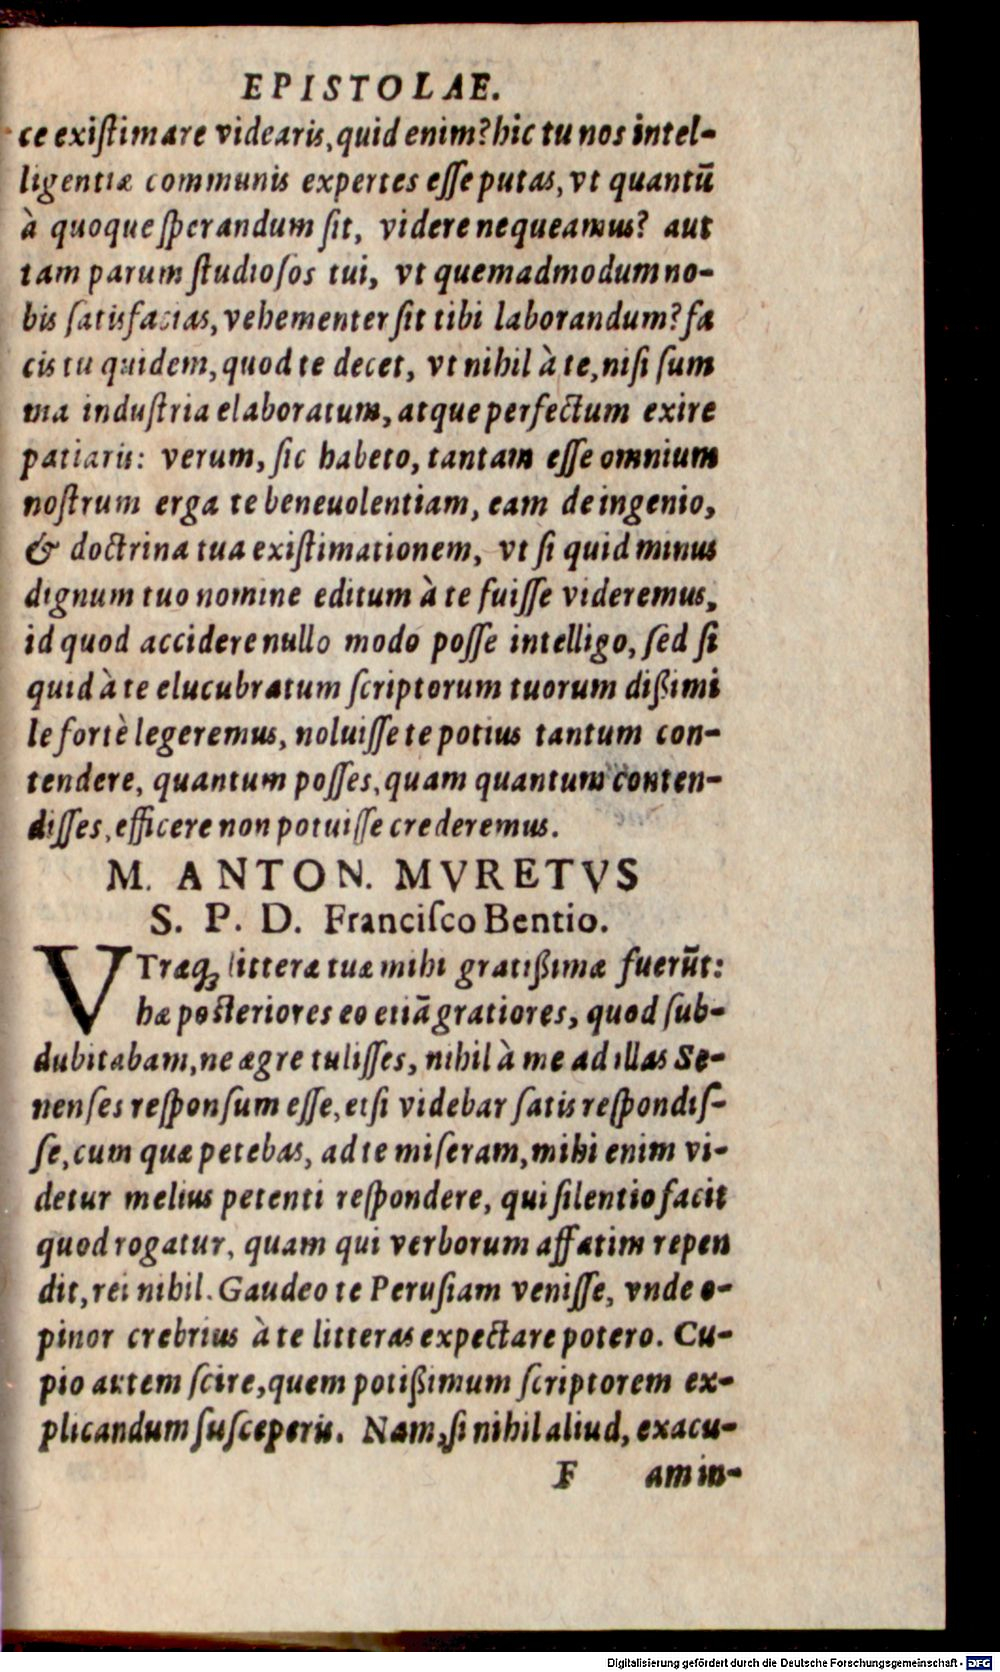 EPISTOLAE.
ce exiſtimare videaris, quid enim? hic tu nos intel-
ligentiæ communis expertes eſſe putas, vt quantū
à quoque ſperandum ſit, videre nequeamus? aut
tam parum ſtudioſos tui, vt quemadmodum no-
bis ſatisfacias, vehementer ſit tibi laborandum? fa
cis tu quidem, quod te decet, vt nihil à te, niſi ſum
ma induſtria elaboratum, atque perfectum exire
patiaris: verum, ſic habeto, tantam eſſe omnium
noſtrum erga te beneuolentiam, eam de ingenio,
& doctrina tua exiſtimationem, vt ſi quid minus
dignum tuo nomine editum à te fuiſſe videremus,
id quod accidere nullo modo poſſe intelligo, ſed ſi
quid à te elucubratum ſcriptorum tuorum dißimi
le fortè legeremus, noluiſſe te potius tantum con-
tendere, quantum poſſes, quam quantum conten-
diſſes, efficere non potuiſſe crederemus.
M. ANTON. MVRETVS
S. P. D. Franciſco Bentio.
VTræq; litteræ tuæ mihi gratißimæ fuerūt:
hæ poſteriores eo etiā gratiores, quod ſub-
dubitabam, ne ægre tuliſſes, nihil à me ad illas Se-
nenſes reſponſum eſſe, etſi videbar ſatis reſpondiſ-
ſe, cum quæ petebas, ad te miſeram, mihi enim vi-
detur melius petenti reſpondere, qui ſilentio facit
quod rogatur, quam qui verborum affatim repen
dit, rei nihil. Gaudeo te Peruſiam veniſſe, vnde o-
pinor crebrius à te litteras expectare potero. Cu-
pio autem ſcire, quem potißimum ſcriptorem ex-
plicandum ſuſceperis. Nam, ſi nihil aliud, exacu-
F am in-
Digitalisierung gefördert durch die Deutsche Forschungsgemeinschaft - DFG